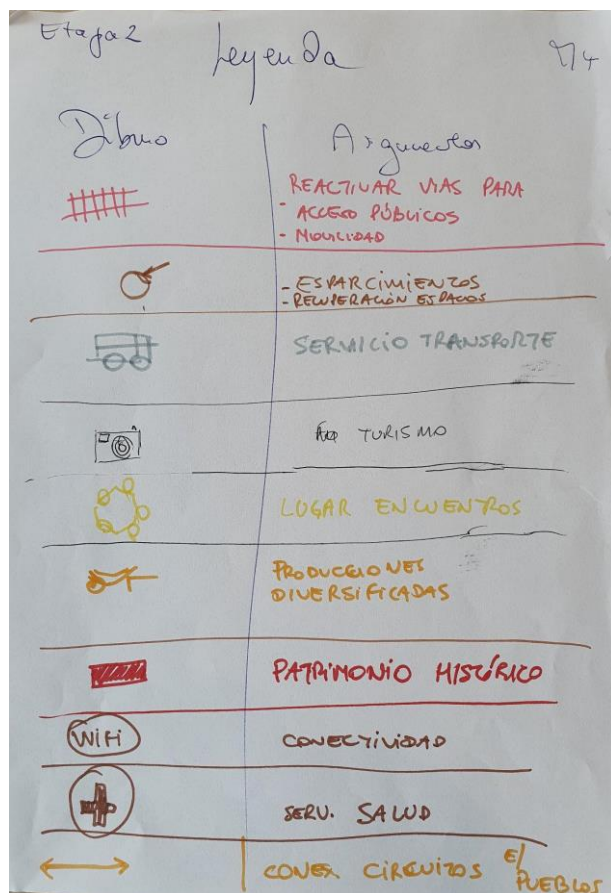 Etapa 2
Leyenda
M4
Dibujo
Argumentos
REACTIVAR VIAS PARA
- ACCESO PÚBLICOS
- MOVILIDAD
- ESPARCIMIENTOS
- RECUPERACIÓN ESPACIOS
SERVICIO TRANSPORTE
TURISMO
LUGAR ENCUENTROS
PRODUCCIONES
DIVERSIFICADAS
PATRIMONIO HISTÓRICO
WiFi
CONECTIVIDAD
SERV. SALUD
CONEX CIRCUITOS E/
PUEBLOS